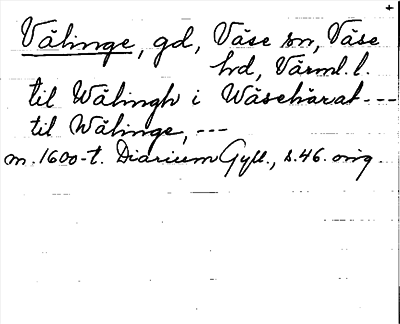 Välinge, gd, Väse sn, Väse
hd, Värml. l.
til Wälingh i Wäsehärat ---
til Wälinge, ---
m. 1600-t. Diarium Gyll., s. 46. orig.